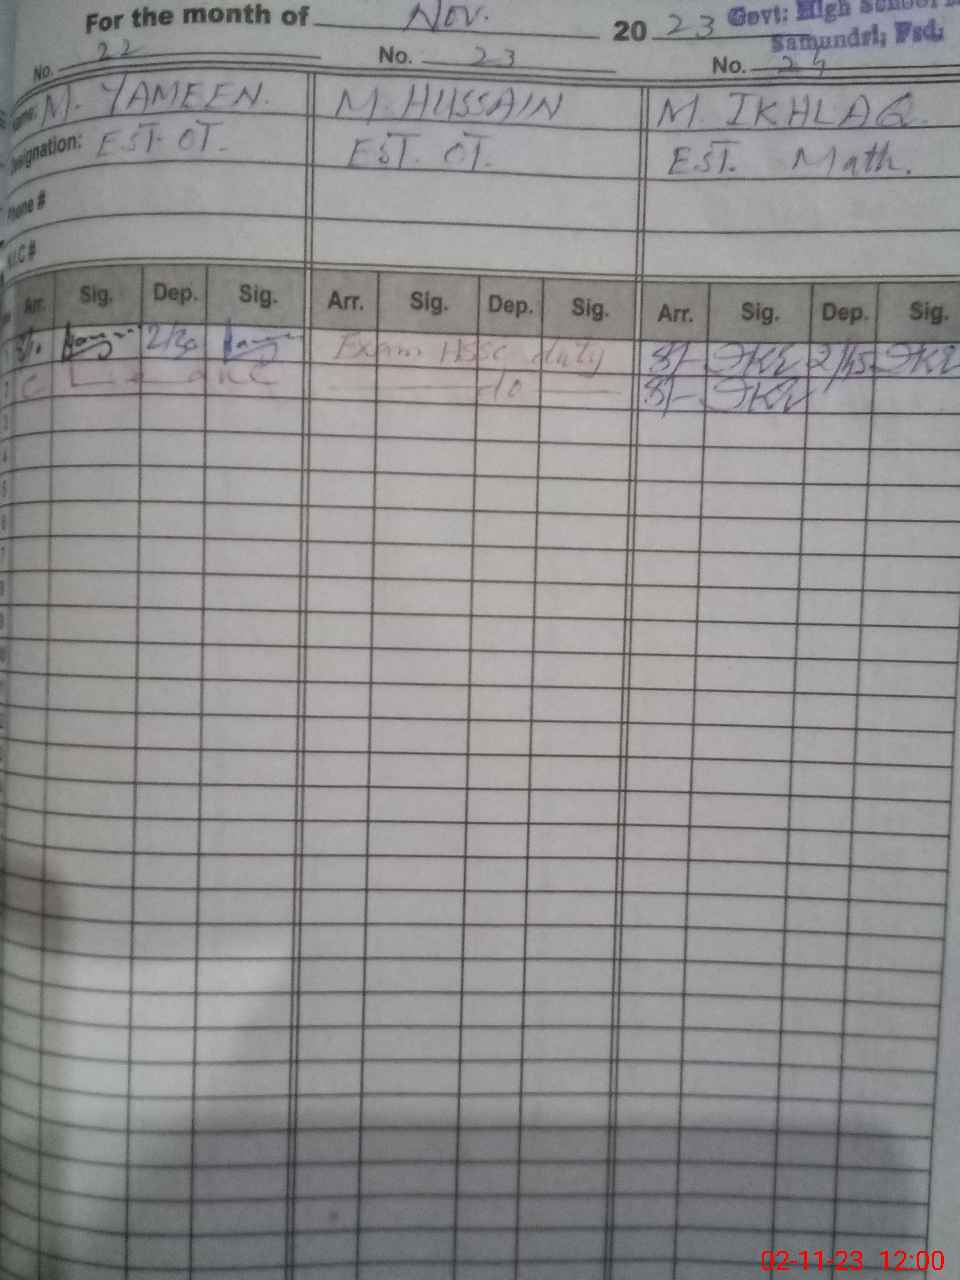 For the month of Nov. 2023 Govt: High School
Samundri; Fsd:
No. 22 No. 23 No. 24
Name: M. YAMEEN. M. HUSSAIN M. IKHLAQ.
Designation: EST. OT. EST. OT. EST. Math.
Phone #
N.I.C #
Arr. Sig. Dep. Sig. Arr. Sig. Dep. Sig. Arr. Sig. Dep. Sig.
1 8/. 2/30 Exam HSSC duty 8/- 2/45
2 C Leave do 8/-
3
4
5
6
7
8
9
02-11-23 12:00